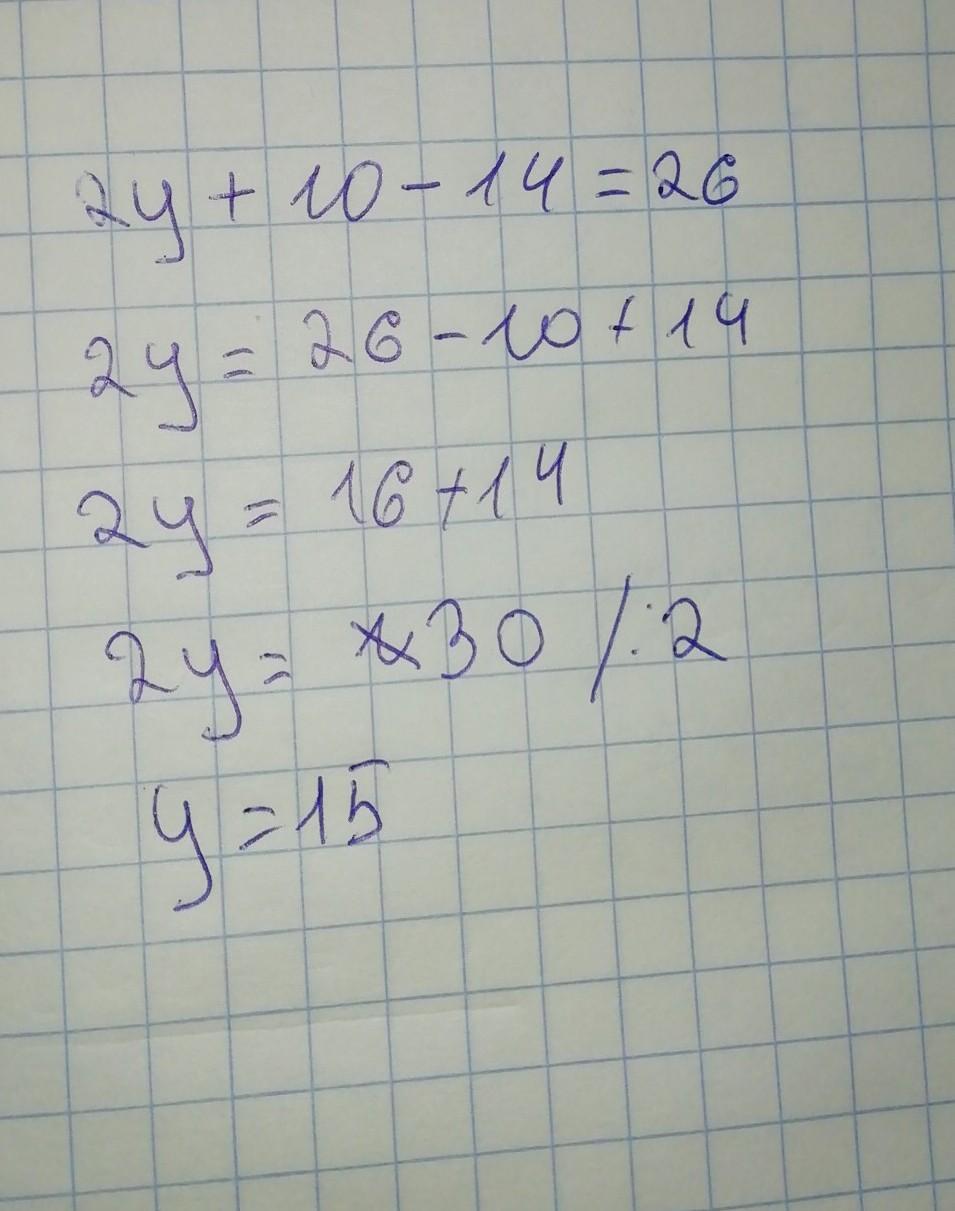 2y + 10 - 14 = 26
2y = 26 - 10 + 14
2y = 16 + 14
2y = 30 / : 2
y = 15